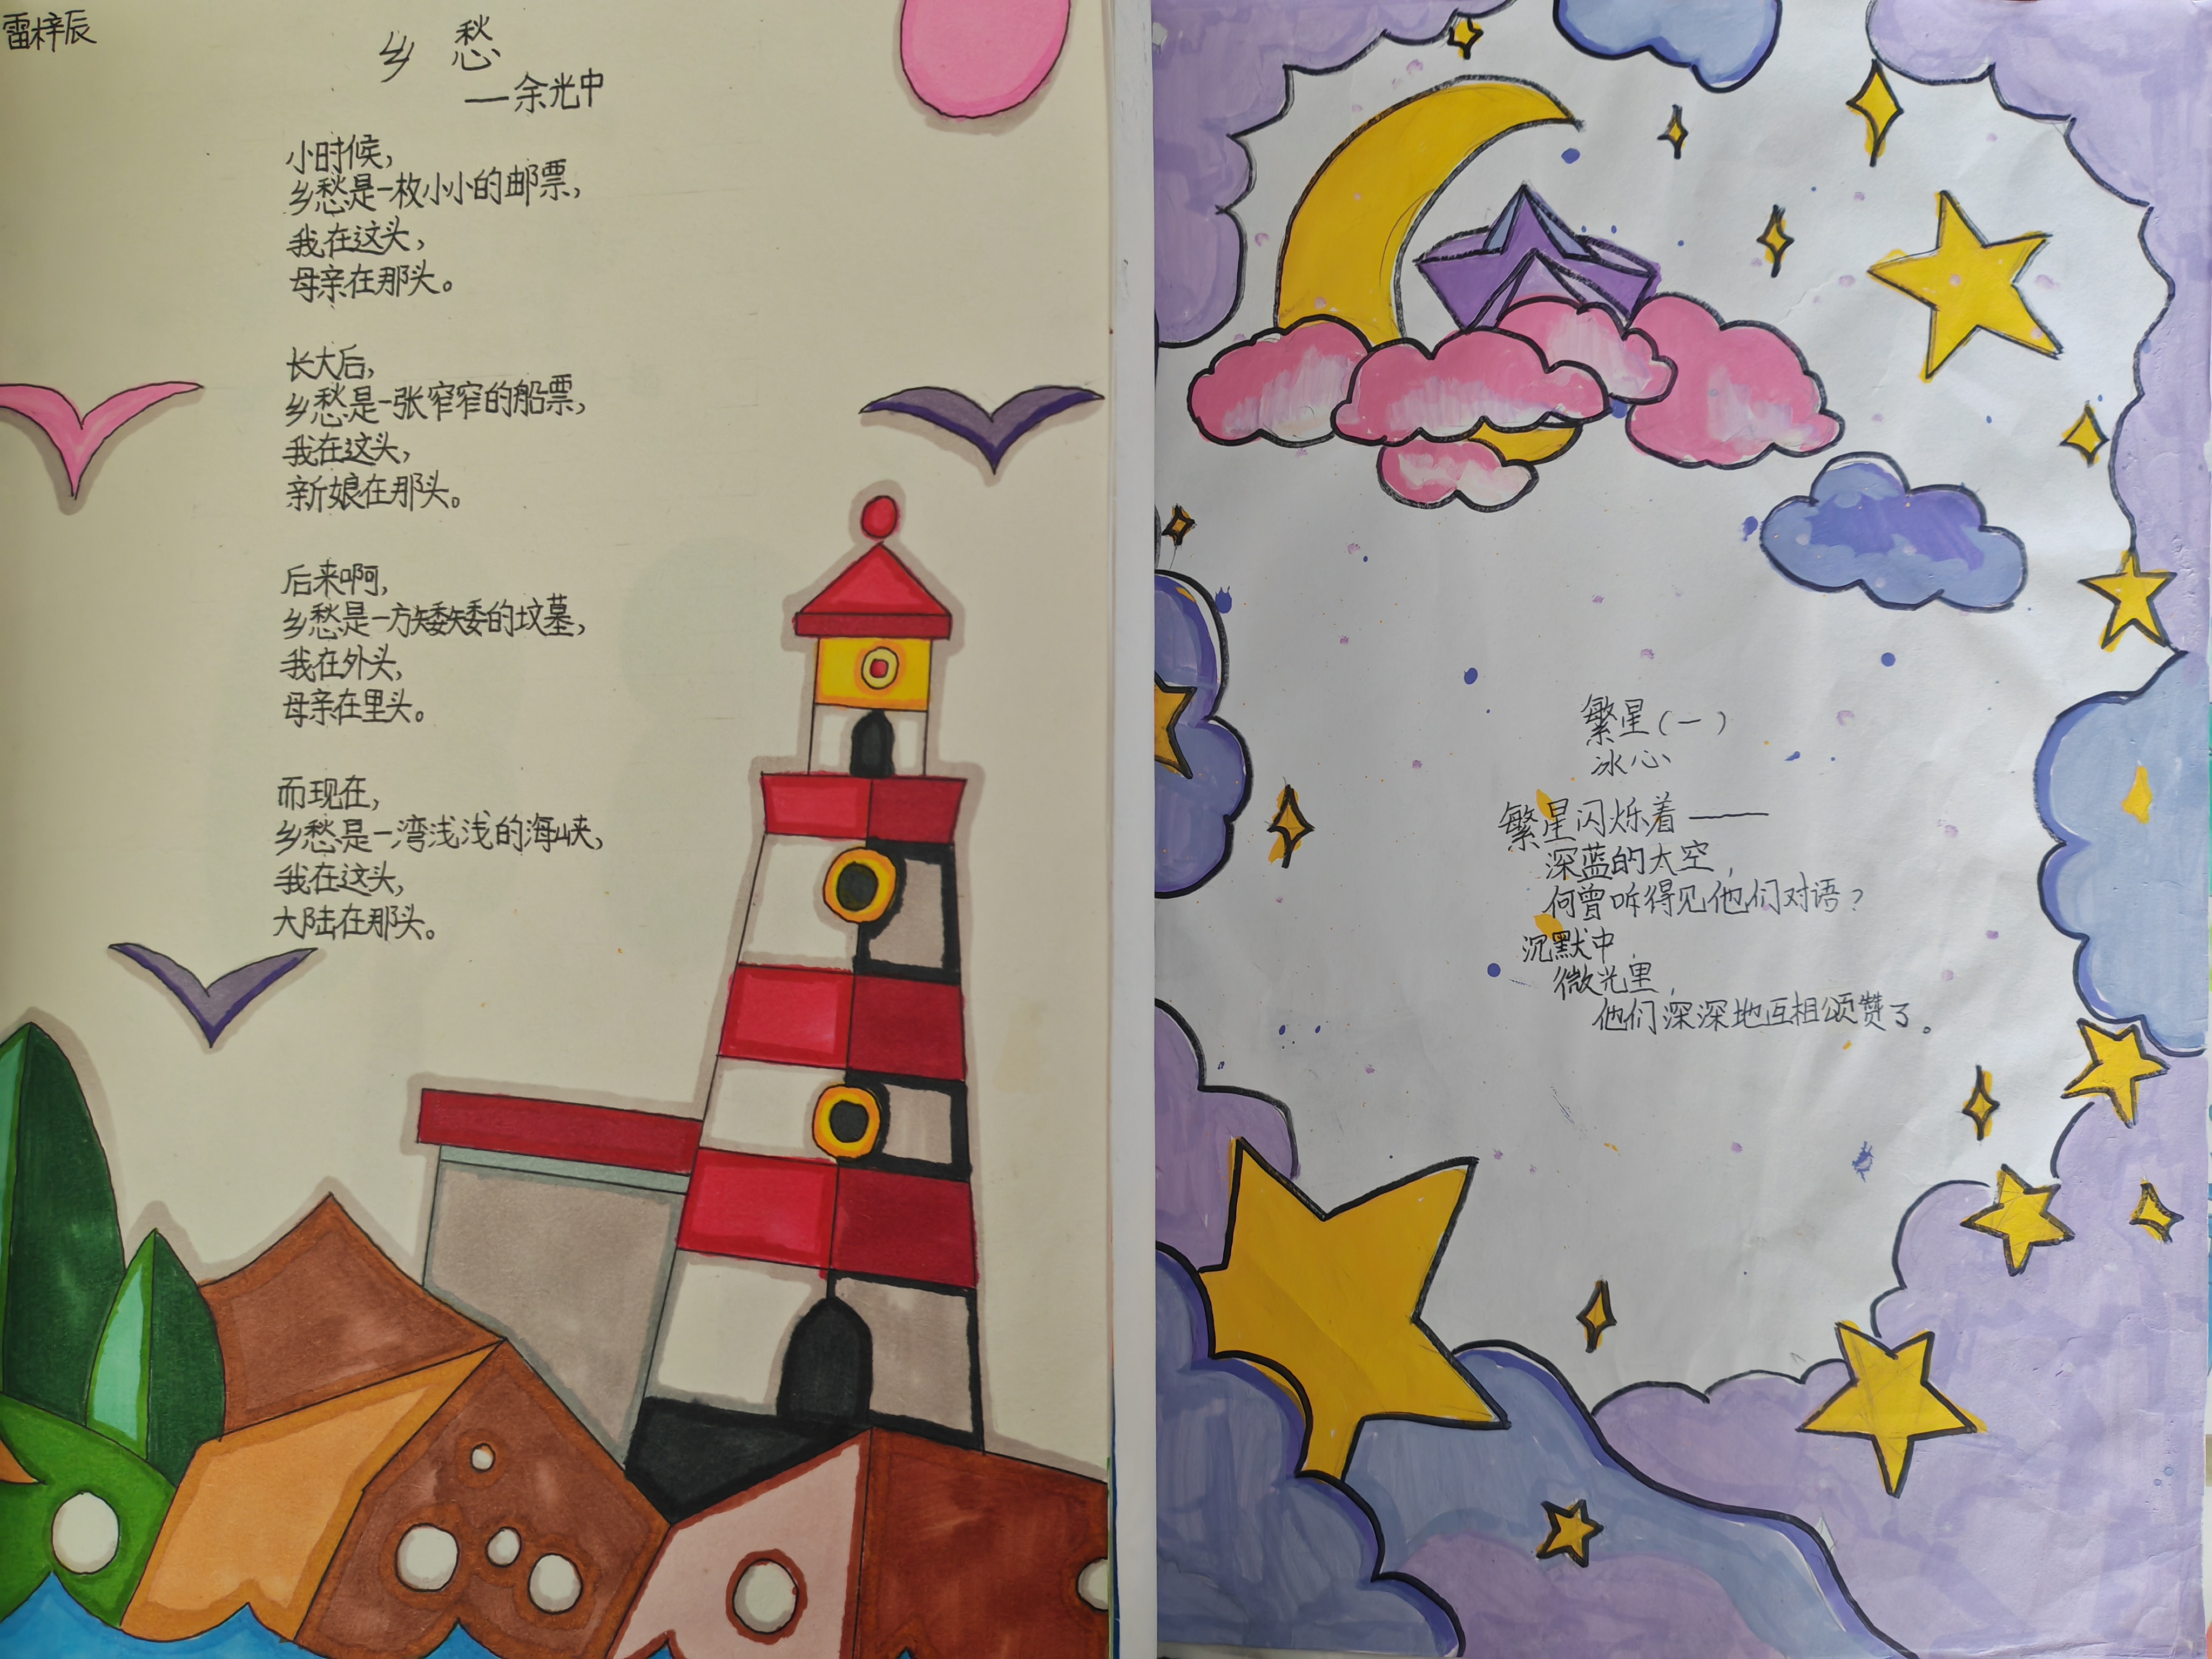 雷梓辰
乡 愁
——余光中
小时候,
乡愁是一枚小小的邮票,
我在这头,
母亲在那头。
长大后,
乡愁是一张窄窄的船票,
我在这头,
新娘在那头。
后来啊,
乡愁是一方矮矮的坟墓,
我在外头,
母亲在里头。
而现在,
乡愁是一湾浅浅的海峡,
我在这头,
大陆在那头。
繁星(一)
冰心
繁星闪烁着——
深蓝的太空,
何曾听得见他们对语?
沉默中,
微光里,
他们深深地互相颂赞了。